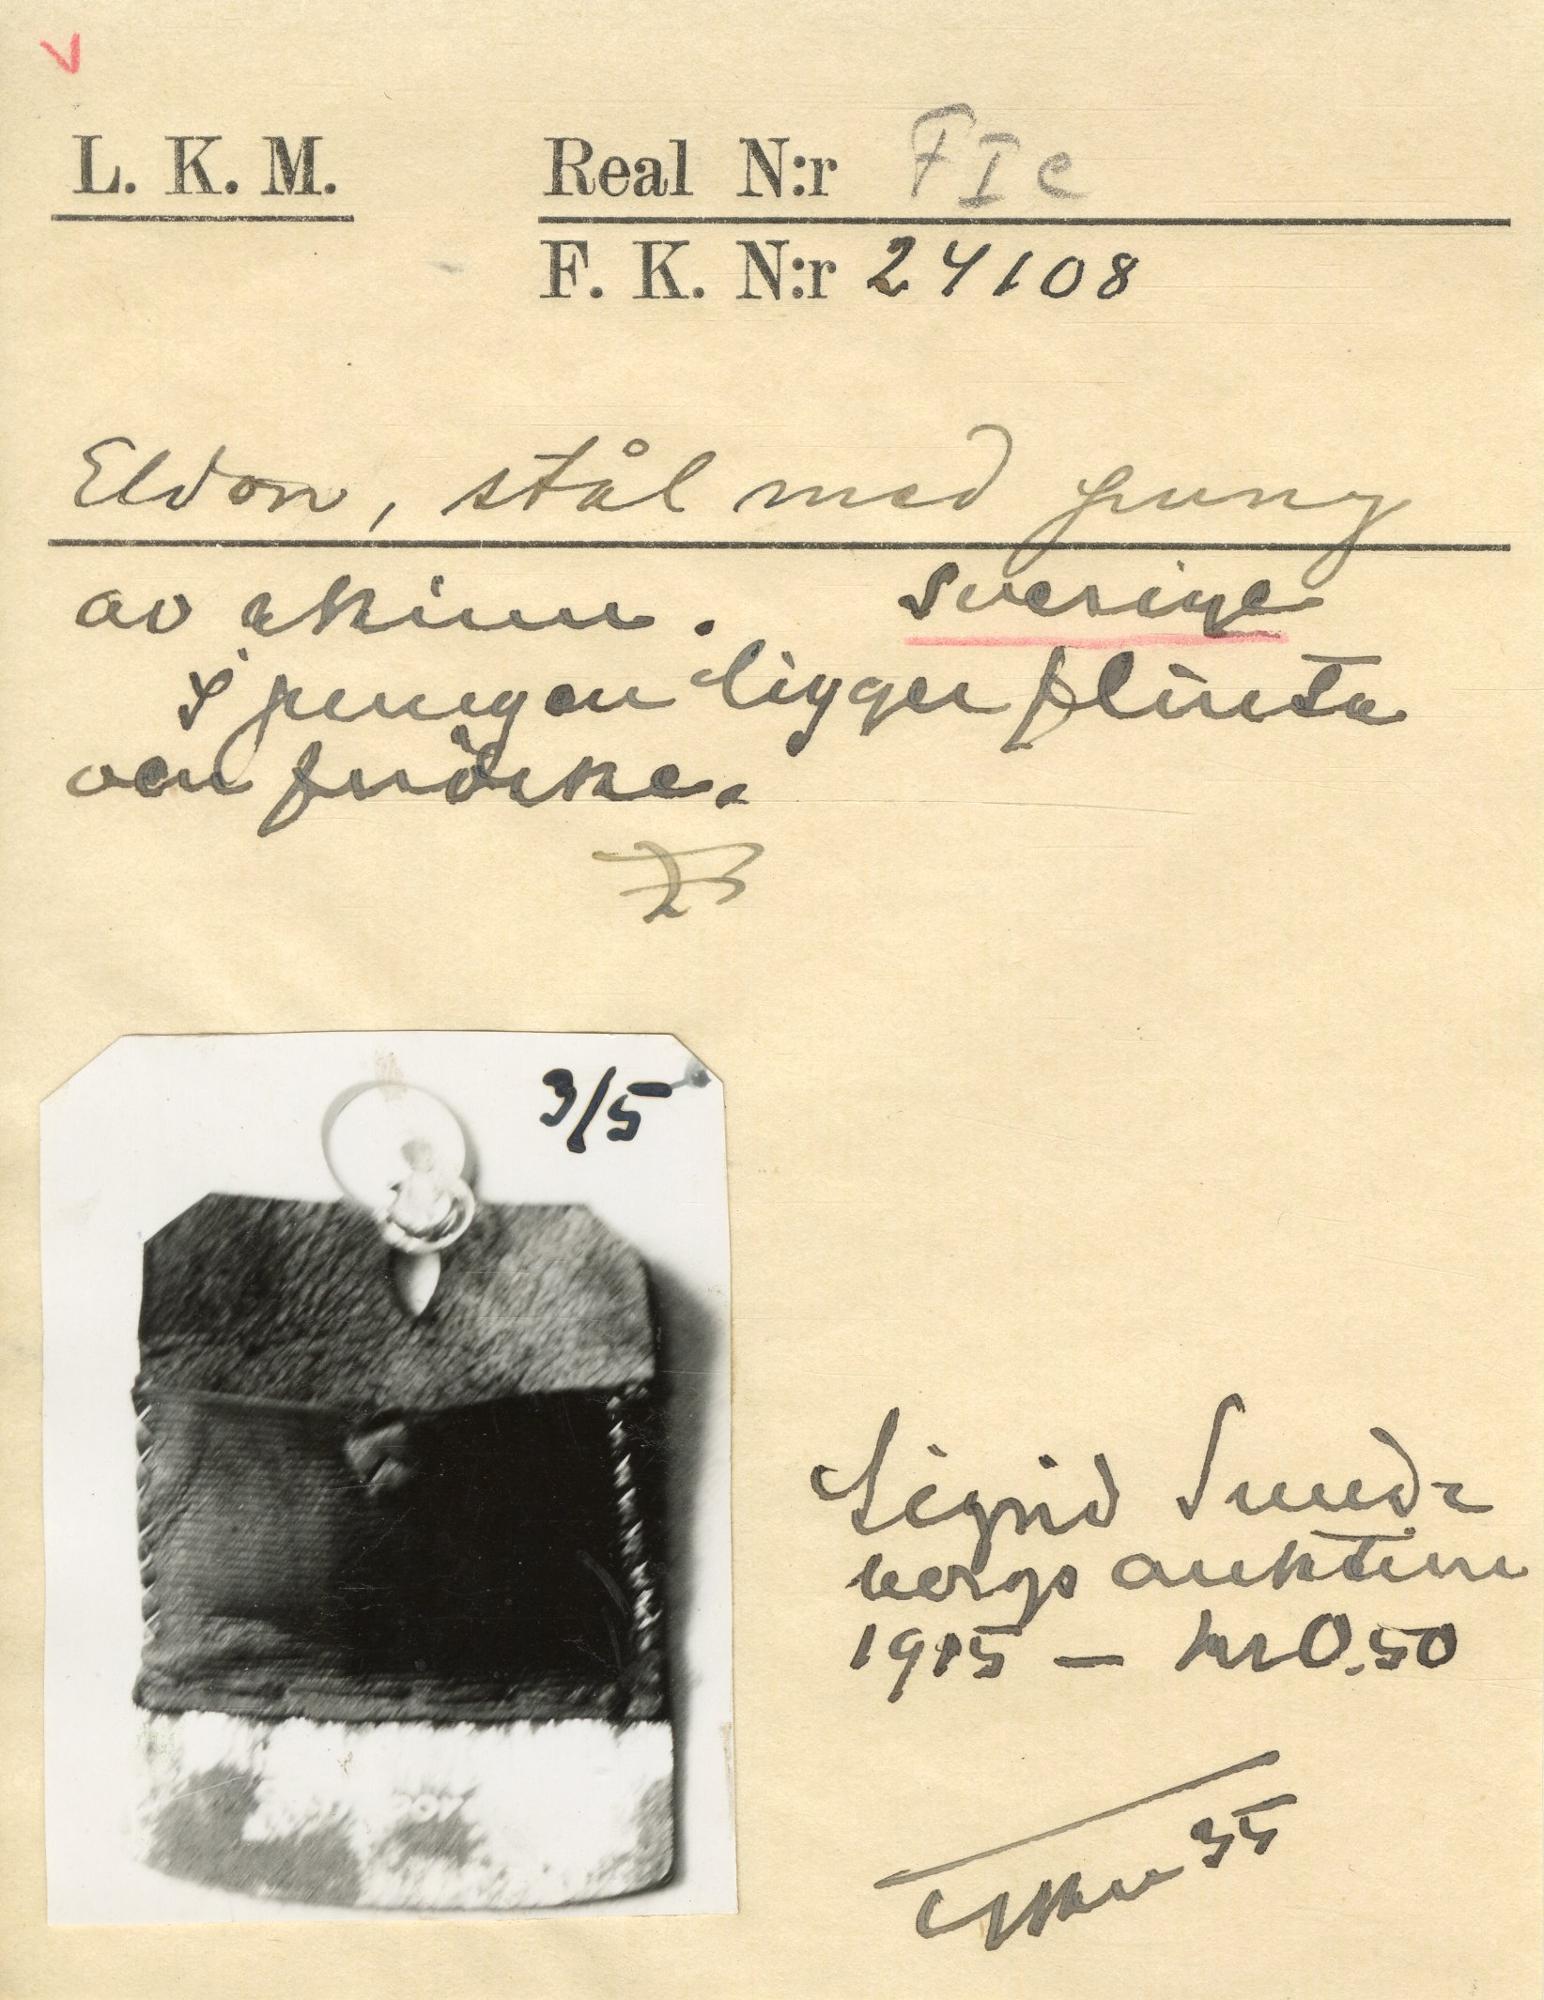 V
L. K. M.
Real N:r FIc
F. K. N:r 24108
Eldon, stål med pung
av skinn. Sverige
I pungen ligger flinta
och fnöske.
3/5
Sigrid Sund-
bergs auktion
1915 — kr 0.50
35